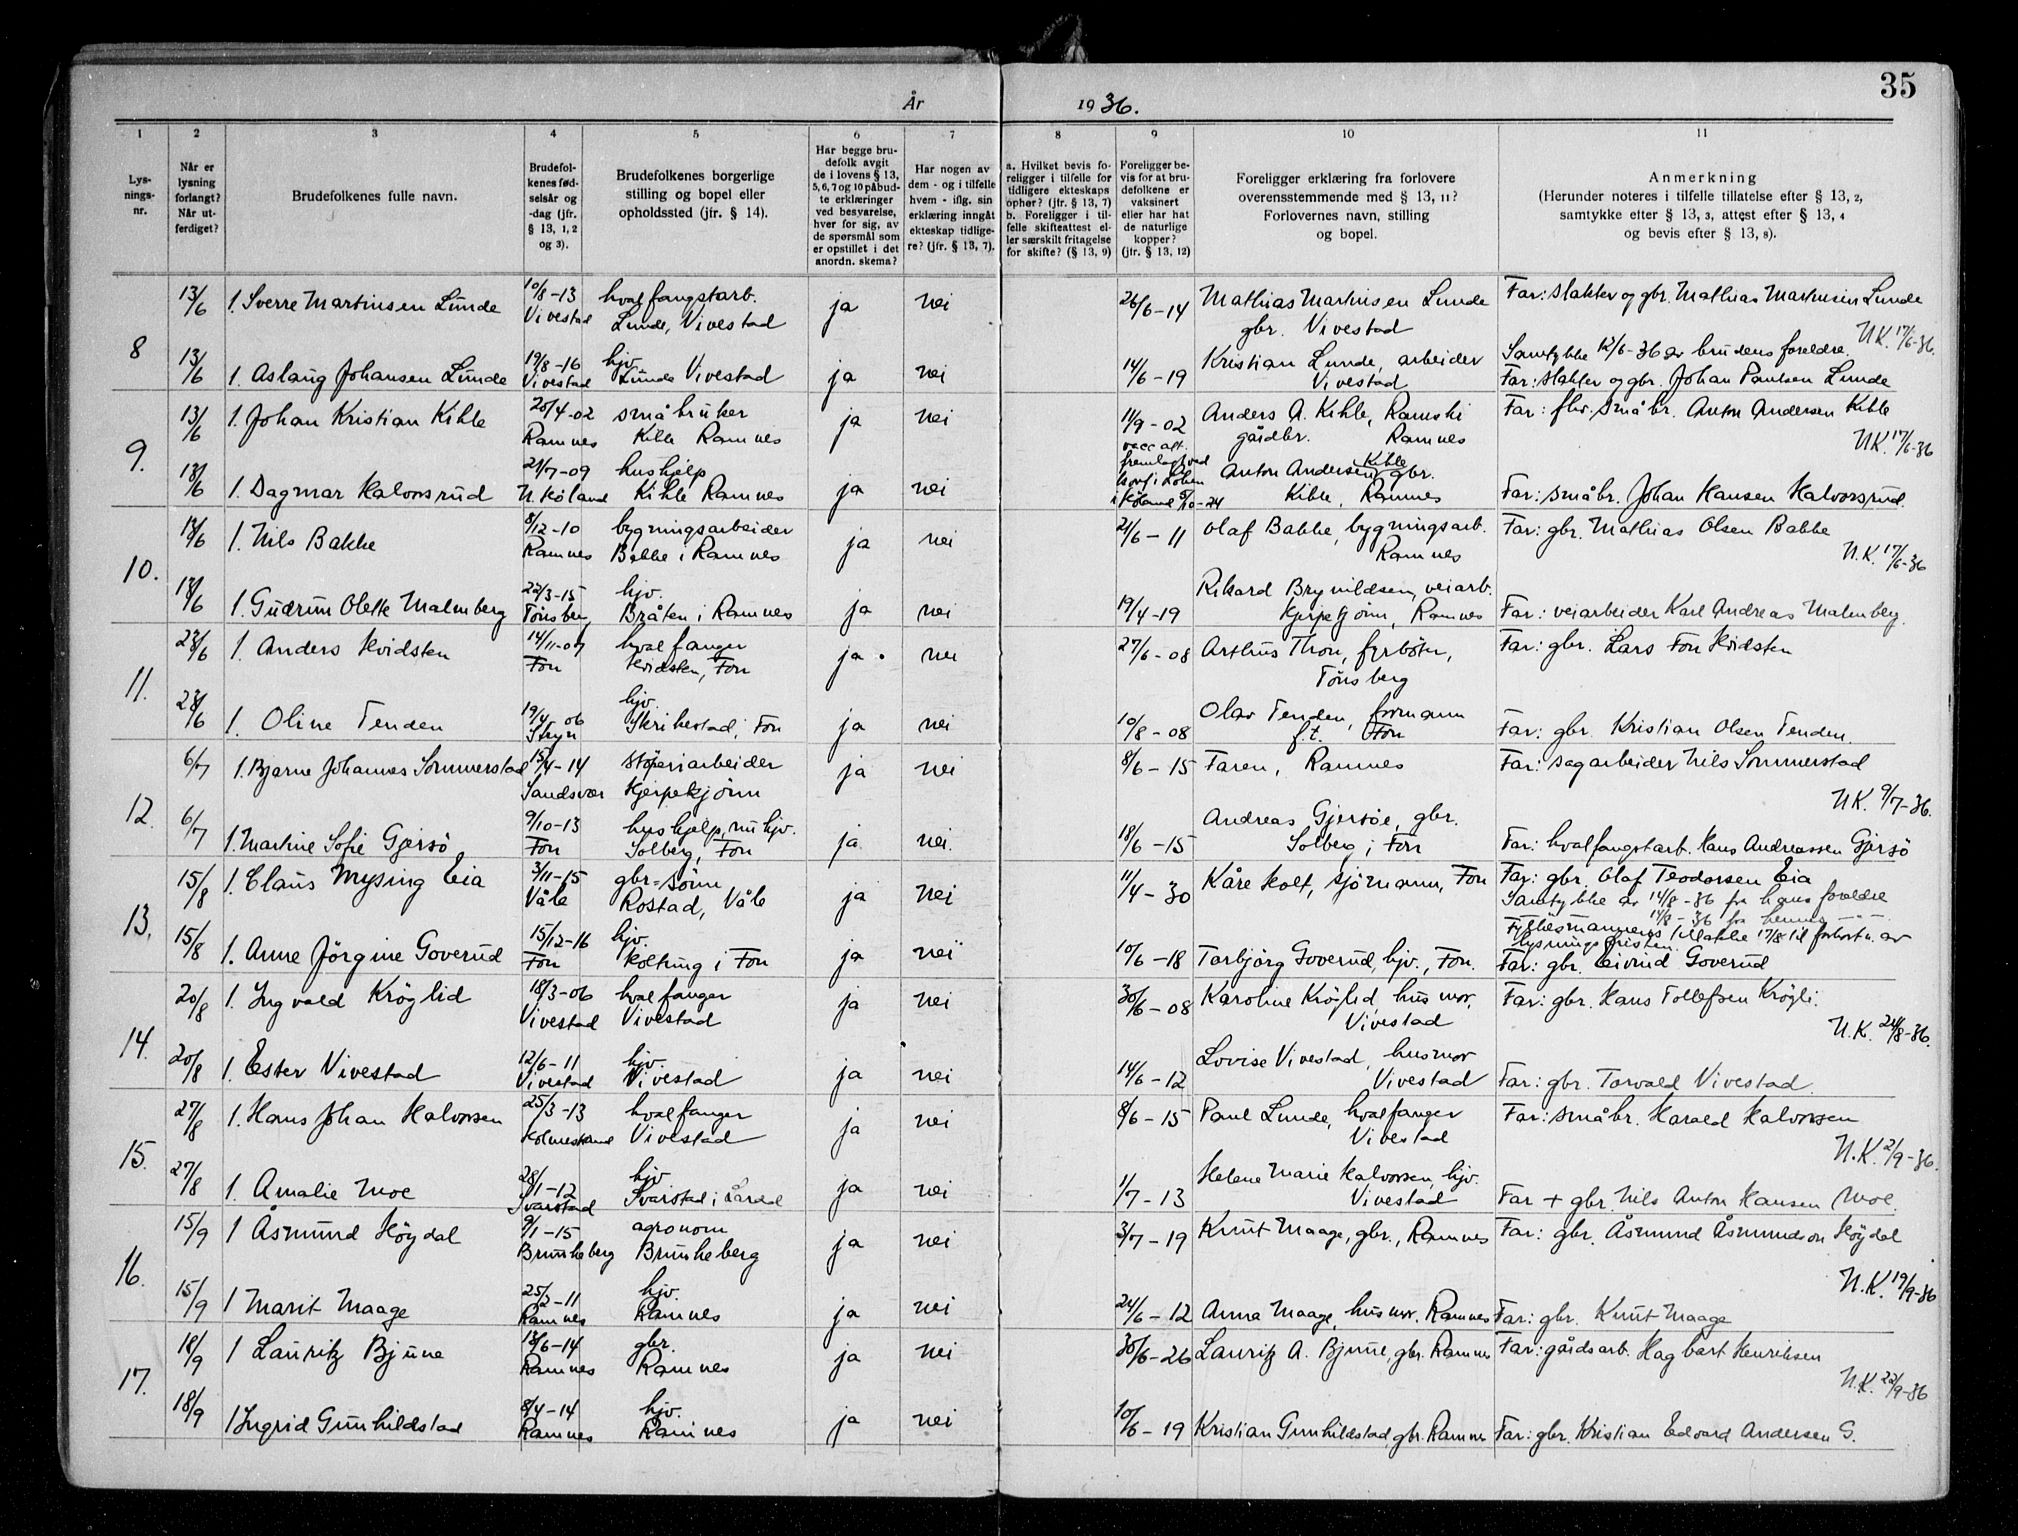 35
År 1936.
1 2 3 4 5 6 7 8 9 10 11
Lysningsnr.
Når er lysning forlangt? Når utferdiget?
Brudefolkenes fulle navn.
Brudefolkenes fødselsår og -dag (jfr. § 13, 1, 2 og 3).
Brudefolkenes borgerlige stilling og bopel eller opholdssted (jfr. § 14).
Har begge brudefolk avgit de i lovens § 13, 5, 6, 7 og 10 påbudte erklæringer ved besvarelse, hver for sig, av de spørsmål som er opstillet i det anordn. skema?
Har nogen av dem - og i tilfelle hvem - iflg. sin erklæring inngått ekteskap tidligere? (jfr. § 13, 7).
a. Hvilket bevis foreligger i tilfelle for tidligere ekteskaps ophør? (jfr. § 13, 7) b. Foreligger i tilfelle skifteattest eller særskilt fritagelse for skifte? (§ 13, 9)
Foreligger bevis for at brudefolkene er vaksinert eller har hat de naturlige kopper? (jfr. § 13, 12)
Foreligger erklæring fra forlovere overensstemmende med § 13, 11? Forlovernes navn, stilling og bopel.
Anmerkning (Herunder noteres i tilfelle tillatelse efter § 13, 2, samtykke efter § 13, 3, attest efter § 13, 4 og bevis efter § 13, 8).
8
13/6 1. Sverre Martinsen Lunde 10/8-13 Vivestad hvalfangstarb. Lunde, Vivestad ja nei 26/6-14 Mathias Martinsen Lunde gbr. Vivestad Far: slakter og gbr. Mathias Martinsen Lunde
N.K. 17/6-36.
13/6 1. Aslaug Johansen Lunde 19/8-16 Vivestad hjv. Lunde Vivestad ja nei 14/6-19 Kristian Lunde, arbeider Vivestad Samtykke 12/6-36 av brudens foreldre. Far: slakter og gbr. Johan Paulsen Lunde
9.
13/6 1. Johan Kristian Kihle 20/4-02 Ramnes småbruker Kihle Ramnes ja nei 11/9-02 Anders A. Kihle, Ramnes gårdbr. Ramnes Far: fhv. småbr. Anton Andersen Kihle
N.K. 17/6-36
13/6 1. Dagmar Halvorsrud 21/7-09 hushjelp Kihle Ramnes ja nei vacc. att. fremlagt ved konf. i 5/10-24 Anton Andersen Kihle gbr. Kihle, Ramnes Far: småbr. Johan Hansen Halvorsrud.
10.
13/6 1. Nils Bakke 8/12-10 Ramnes bygningsarbeider Bakke i Ramnes ja nei 21/6-11 Olaf Bakke, bygningsarb. Ramnes Far: gbr. Mathias Olsen Bakke
N.K. 17/6-36
13/6 1. Gudrun Olette Malmberg 22/3-15 Tønsberg hjv. Bråten i Ramnes ja nei 19/4-19 Rikard Brynildsen, veiarb. Kjerpekjønn, Ramnes Far: veiarbeider Karl Andreas Malmberg.
11.
23/6 1. Anders Hvidsten 14/11-07 Fon hvalfanger Hvidsten, Fon ja nei 27/6-08 Arthus Thon, fyrbøter, Tönsberg Far: gbr. Lars Fon Hvidsten
23/6 1. Oline Tenden 19/4 06 Stryn hjv. Skrikestad, Fon ja nei 10/8-08 Olav Tenden, formann f.t. Fon Far: gbr. Kristian Olsen Tenden.
12.
6/7 1. Bjarne Johannes Sommerstad 15/4-14 Sandsvær støperiarbeider Kjerpekjönn ja nei 8/6-15 Faren, Ramnes Far: sagarbeider Nils Sommerstad
N.K. 9/7-36.
6/7 1. Martine Sofie Gjersö 9/10-13 Fon hushjelp, nu hjv. Solberg, Fon ja nei. 18/6-15 Andreas Gjersöe, gbr. Solberg i Fon Far: hvalfangstarb. Hans Andreassen Gjersö
13.
15/8 1. Claus Mysing Eia 3/11-15 Våle gbr.-sönn Rostad, Våle ja nei 11/4-30 Kåre Holt, sjömann, Fon Far: gbr. Olaf Teodorsen Eia
Samtykke av 14/8-36 fra hans foreldre
14/8-36 fra hennes
Fylkesmannens tillatelse 17/8 til forkort. av lysningsfristen.
15/8 1. Anne Jörgine Goverud 15/12-16 Fon hjv. Holtung i Fon ja nei 10/6-18 Torbjörg Goverud, hjv., Fon. Far: gbr. Eivind Goverud
14.
20/8 1. Ingvald Kröglid 18/3-06 Vivestad hvalfanger Vivestad ja nei 30/6-08 Karoline Kröglid, husmor, Vivestad Far: gbr. Hans Tollefsen Krögli.
N.K. 24/8-36.
20/8 1. Ester Vivestad 12/6-11 Vivestad hjv. Vivestad ja nei 14/6-12 Lovise Vivestad, husmor Vivestad Far: gbr. Torvald Vivestad
15.
27/8 1. Hans Johan Halvorsen 25/3-13 Holmestrand hvalfanger Vivestad ja nei 8/6-15 Paul Lunde, hvalfanger Vivestad Far: småbr. Harald Halvorsen
N.K. 2/9-36.
27/8 1. Amalie Moe 28/1-12 Svarstad hjv. Svarstad i Lardal ja nei 1/7-13 Helene Marie Halvorsen, hjv. Vivestad Far + gbr. Nils Anton Hansen Moe.
16.
15/9 1 Åsmund Höydal 9/1-15 Brunkeberg agronom Brunkeberg ja nei 3/7-19 Knut Maage, gbr., Ramnes Far: gbr. Åsmund Åsmundson Höydal
N.K. 19/9-36
15/9 1 Marit Maage 25/2-11 Ramnes hjv. Ramnes ja nei 24/6-12 Anna Maage, husmor, Ramnes Far: gbr. Knut Maage
17.
18/9 1 Lauritz Bjune 13/6-14 Ramnes gbr. Ramnes ja nei 30/6-26 Lauritz A. Bjune, gbr. Ramnes Far: gårdsarb. Hagbart Henriksen
N.K. 22/9-36
18/9 1 Ingrid Gunhildstad 8/4-14 Ramnes hjv. Ramnes ja nei 10/6-19 Kristian Gunhildstad, gbr. Ramnes Far: gbr. Kristian Edvard Andersen G.